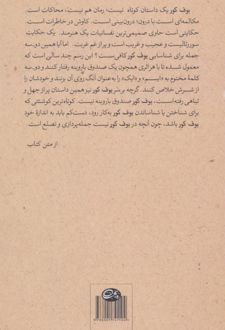 بوف کور یک داستان کوتاه نیست؛ رمان هم نیست، محاکات است.
مکالمه‌ای است با درون؛ درون‌بینی است. کاوش در خاطرات است.
حکایتی است حاوی صمیمی‌ترین نفسانیات یک هنرمند. یک حکایت
سوررئالیست و عجیب و غریب است و پر از غم غربت. اما آیا همین دو، سه
جمله برای شناسایی بوف کور کافی‌ست؟ این رسم چند سالی است که
معمول شده تا با هر اثری همچون یک صندوق باروبنه رفتار کنند و دو، سه
کلمهٔ مختوم به «ایسم» و «ایک» را به عنوان انگ روی آن بزنند و خودشان را
از شرش خلاص کنند. گرچه بر سر بوف کور نیز همین داستان پر از جهل و
تباهی رفته است، بوف کور صندوق باروبنه نیست. کوتاه‌ترین کوششی که
برای شناختن یا شناساندن بوف کور به‌کار رود، دست‌کم باید به اندازهٔ خود
بوف کور باشد، چون آنچه در بوف کور نیست جمله‌پردازی و تصنع است.
از متن کتاب